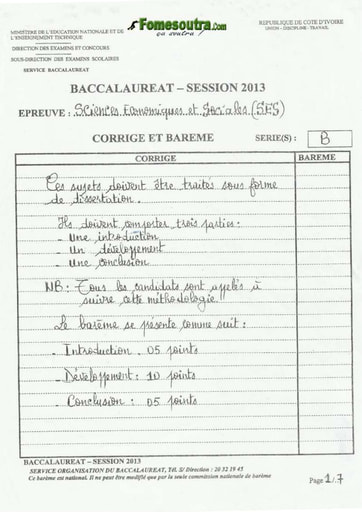 Fomesoutra.com
ça soutra !
MINISTERE DE L'EDUCATION NATIONALE ET DE
L'ENSEIGNEMENT TECHNIQUE
REPUBLIQUE DE COTE D'IVOIRE
UNION – DISCIPLINE - TRAVAIL
DIRECTION DES EXAMENS ET CONCOURS
SOUS-DIRECTION DES EXAMENS SCOLAIRES
SERVICE BACCALAUREAT
BACCALAUREAT – SESSION 2013
EPREUVE : Sciences Economiques et Sociales (SES)
CORRIGE ET BAREME SERIE(S) : B
CORRIGE BAREME
Ces sujets doivent être traités sous forme
de dissertation.
Ils doivent comporter trois parties :
- Une introduction
- Un développement
- Une conclusion
NB : Tous les candidats sont appelés à
suivre cette méthodologie.
Le barème se présente comme suit :
- Introduction . 05 points
- Développement : 10 points
- Conclusion : 05 points
BACCALAUREAT – SESSION 2013
SERVICE ORGANISATION DU BACCALAUREAT, Tél. S/ Direction : 20 32 19 45
Ce barème est national. Il ne peut être modifié que par la seule commission nationale de barème
Page 1/.7